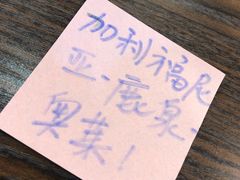 加利福尼
亚、鹿泉、
奥莱！